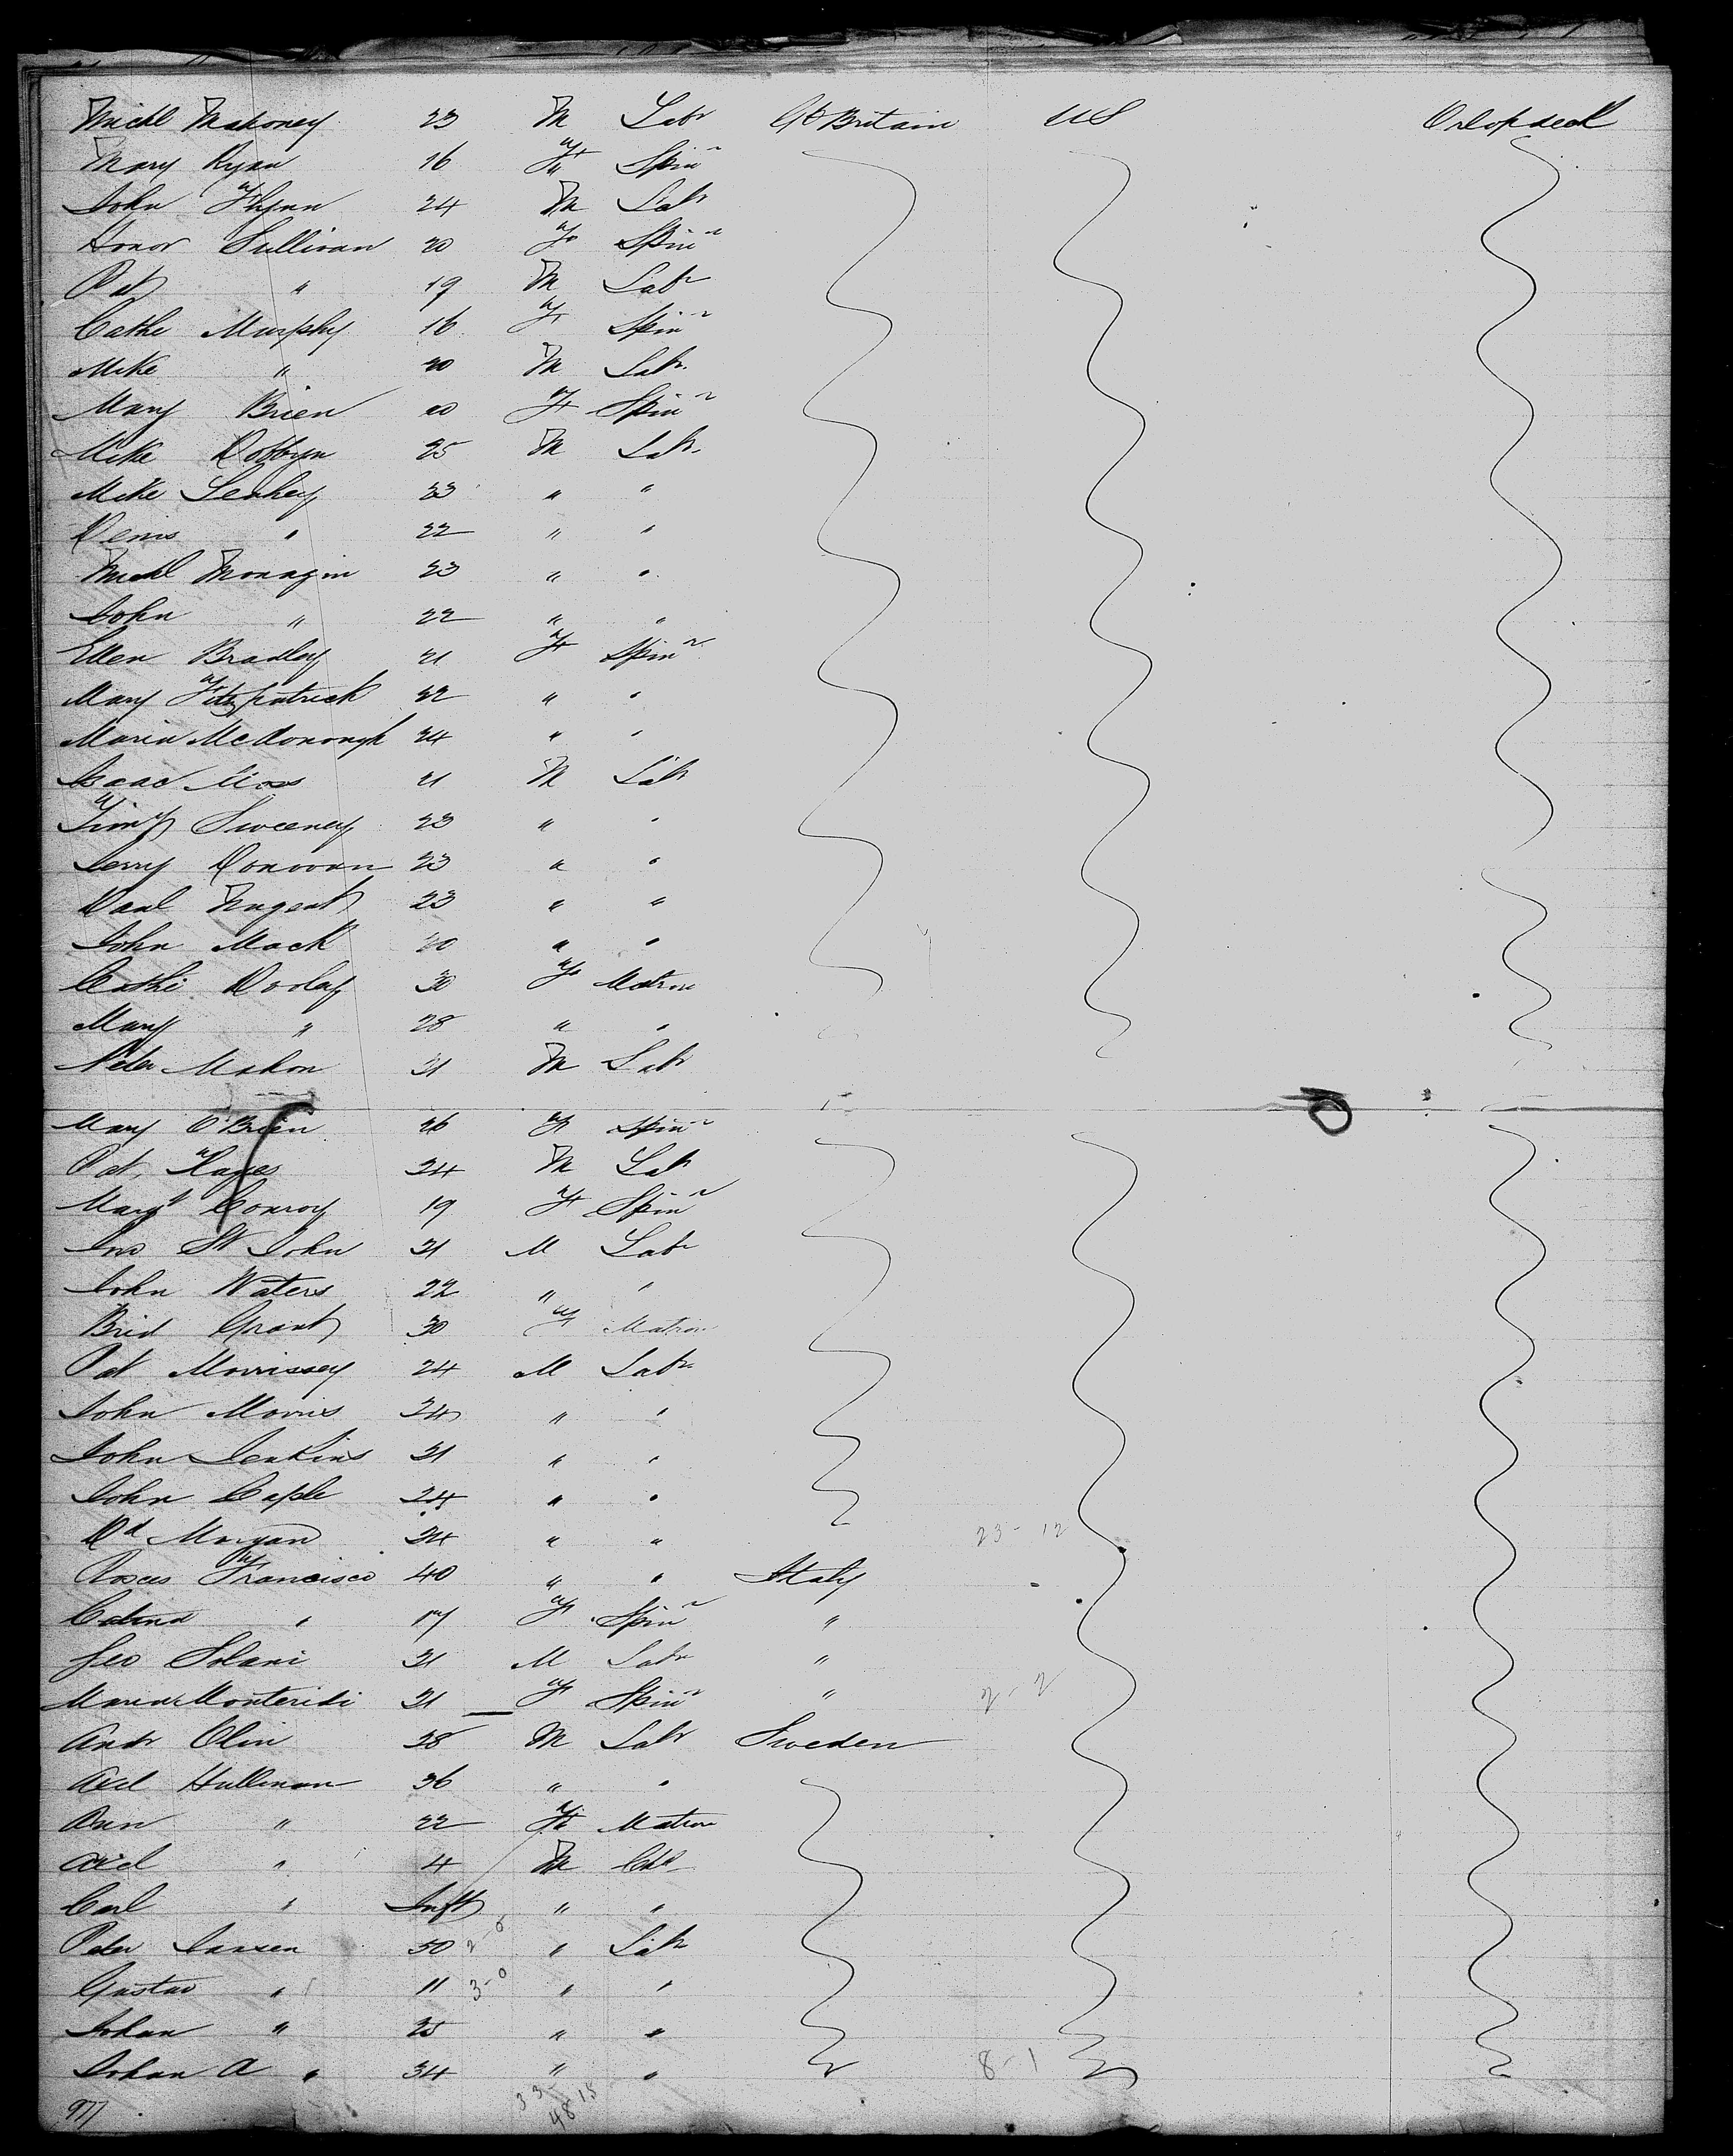 Michl Mahoney 23 M Labr Gt Britain US Orlopdeck
Mary Ryan 16 F Spinr
John Flynn 24 M Labr
Honor Sullivan 20 F Spinr
Pat " 19 M Labr
Cathe Murphy 16 F Spinr
Mike " 20 M Labr
Mary Brien 20 F Spinr
Mike 25 M Labr
Mike Leahey 23 " "
Denis " 22 " "
Michl Monagin 23 " "
John " 22 " "
Ellen Bradley 21 F Spinr
Mary Fitzpatrick 22 " "
Maria McDonough 24 " "
Isaac 21 M Labr
Timy Sweeney 23 " "
Jerry Donovan 23 " "
Danl Nugent 23 " "
John Mack 20 " "
Cathe Dooley 30 F Matron
Mary " 28 " "
Peter Mahon 21 M Labr
Mary O'Brien 26 F Spinr
Pat Hayes 24 M Labr
Margt Conroy 19 F Spinr
Jno St John 21 M Labr
John Waters 22 " "
Brid Grant 30 F Matron
Pat Morrissey 24 M Labr
John Morris 24 " "
John Jenkins 21 " "
John Caple 24 " "
Dd Morgan 24 " " 23-12
Francisco 40 " " Italy
" 17 F Spinr "
Geo Solani 21 M Labr "
Maria Monteridi 21 F Spinr " 2-2
Andr Olin 28 M Labr Sweden
Axel Hullman 36 " "
Ann " 22 F Matron
Axel " 4 M Chd
Carl " Inft " "
Peter Jansen 50 " Labr
Gustav " 11 3-0 " "
Johan " 25 " "
Johan A " 34 " " 8-1
977 33 48 15